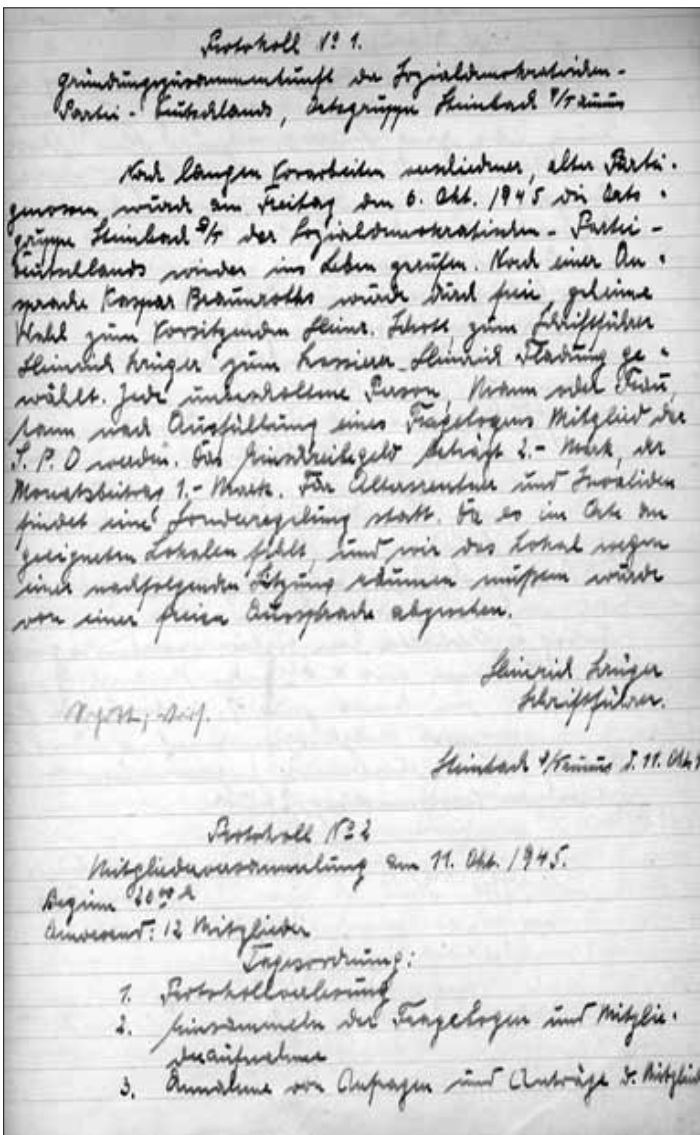 Protokoll № 1.
Gründungszusammenkunft der Sozialdemokratischen-
Partei-Deutschlands, Ortsgruppe Steinbach T/Taunus
Nach langen Vorarbeiten verschiedner, alter Partei-
genossen wurde am Freitag den 6. Okt. 1945 die Orts-
gruppe Steinbach der Sozialdemokratischen-Partei-
Deutschlands wieder ins Leben gerufen. Nach einer An-
sprache Kaspar Braunroths wurde durch freie, geheime
Wahl zum Vorsitzenden Heinr. Schott, zum Schriftführer
Heinrich Krüger zum Kassierer Heinrich Fladung ge-
wählt. Jede unbescholtene Person, Mann oder Frau,
kann nach Ausfüllung eines Fragebogens Mitglied der
S.P.D werden. Das Einschreibegeld beträgt 2.- Mark, der
Monatsbeitrag 1.- Mark. Für Altersrentner und Invaliden
findet eine Sonderregelung statt. Da es im Orte an
geeigneten Lokalen fehlt, und wir das Lokal wegen
einer nachfolgenden Sitzung räumen mußten wurde
von einer freien Aussprache abgesehen.
Heinrich Krüger
Schriftführer.
Schott, Vors.
Steinbach Taunus d. 11. Okt.
Protokoll № 2
Mitgliederversammlung am 11. Okt. 1945.
Beginn 20⁰⁰ h
Anwesend: 12 Mitglieder
Tagesordnung:
1. Protokollverlesung
2. Einsammeln der Fragebogen und Mitglie-
deraufnahme
3. Annahme von Anfragen und Anträge d. Mitglied